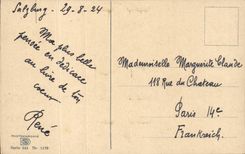 Salzburg - 29-8-24
Ma plus belle
pensée en dédicace
au livre de ton
coeur
René
Mademoiselle Marguerite Claude
118 Rue du Chateau
Paris 14e
Frankreich
Serie 244 Nr. 1178